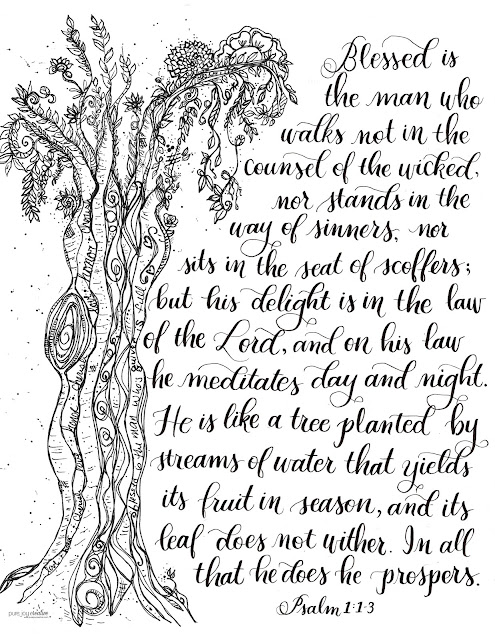 Blessed is
the man who
walks not in the
counsel of the wicked,
nor stands in the
way of sinners, nor
sits in the seat of scoffers;
but his delight is in the law
of the Lord, and on his law
he meditates day and night.
He is like a tree planted by
streams of water that yields
its fruit in season, and its
leaf does not wither. In all
that he does he prospers.
Psalm 1:1-3